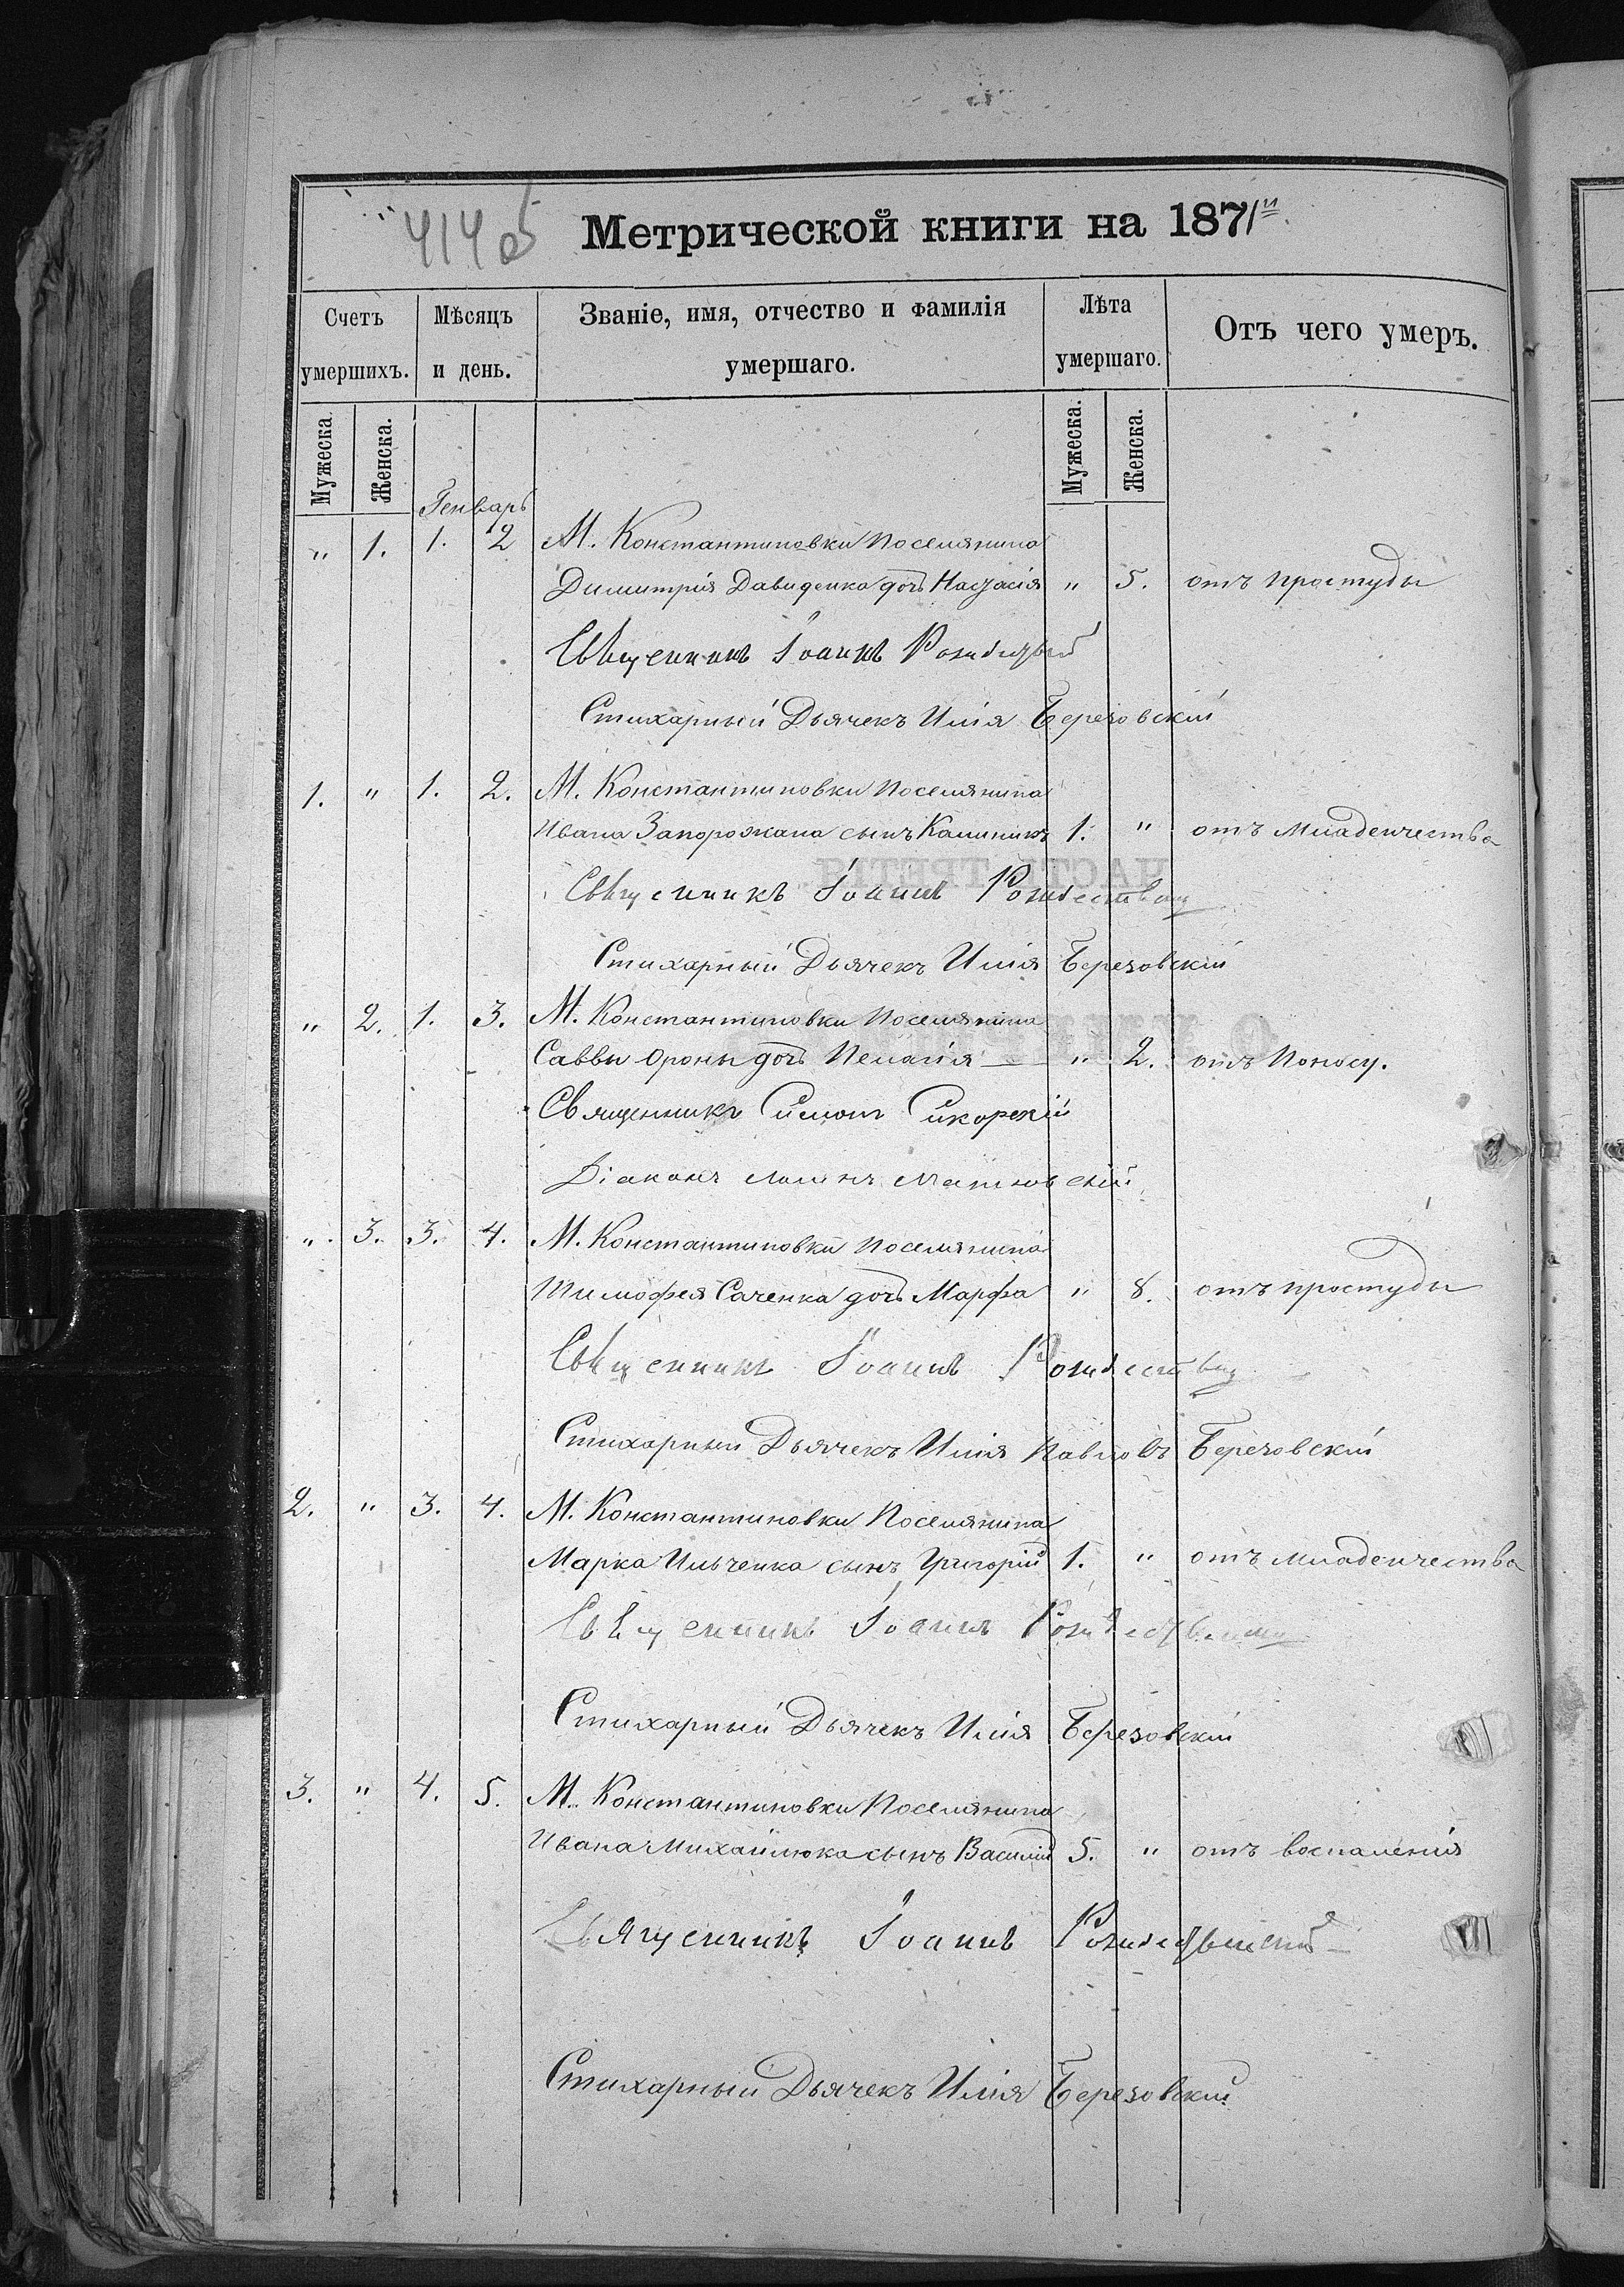 4145 Метрической книги на 1871й.
Счетъ умершихъ. Мѣсяцъ и день. Званіе, имя, отчество и фамилія умершаго. Лѣта умершаго. Отъ чего умеръ.
Мужеска. Женска. Мужеска. Женска.
Генварь
" 1. 1. 2 М. Константиновки поселянина
Димитрія Давиденка дочь " 5. отъ простуды
Свѣщенникъ Іоаннъ
Стихарный Дьячекъ Илія Березовскій
1. " 1. 2. М. Константиновки поселянина
Ивана Запорожана сынъ Калиникъ 1. " отъ младенчества
Свѣщенникъ Іоаннъ
Стихарный Дьячекъ Илія Березовскій
" 2. 1. 3. М. Константиновки поселянина
Саввы Ороны дочь Пелагія " 2. отъ поносу.
Священникъ Симонъ Сикорскій
Діаконъ
" 3. 3. 4. М. Константиновки поселянина
Тимофея Саченка дочь Марфа " 8. отъ простуды
Свѣщенникъ Іоаннъ
Стихарный Дьячекъ Илія Павловъ Березовскій
2. " 3. 4. М. Константиновки поселянина
Марка Ильченка сынъ Григорій 1. " отъ младенчества
Свѣщенникъ Іоаннъ
Стихарный Дьячекъ Илія Березовскій
3. " 4. 5. М. Константиновки поселянина
Ивана Михайлюка сынъ Василій 5. " отъ воспаленія
Священникъ Іоаннъ Рождественскій
Стихарный Дьячекъ Илія Березовскій.